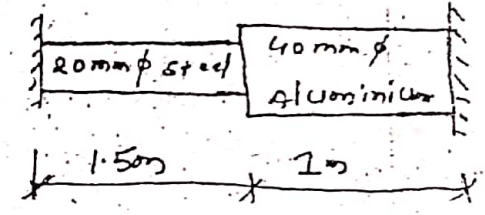 20mmϕ steel
40mm ϕ
Aluminium
1.5m
1m